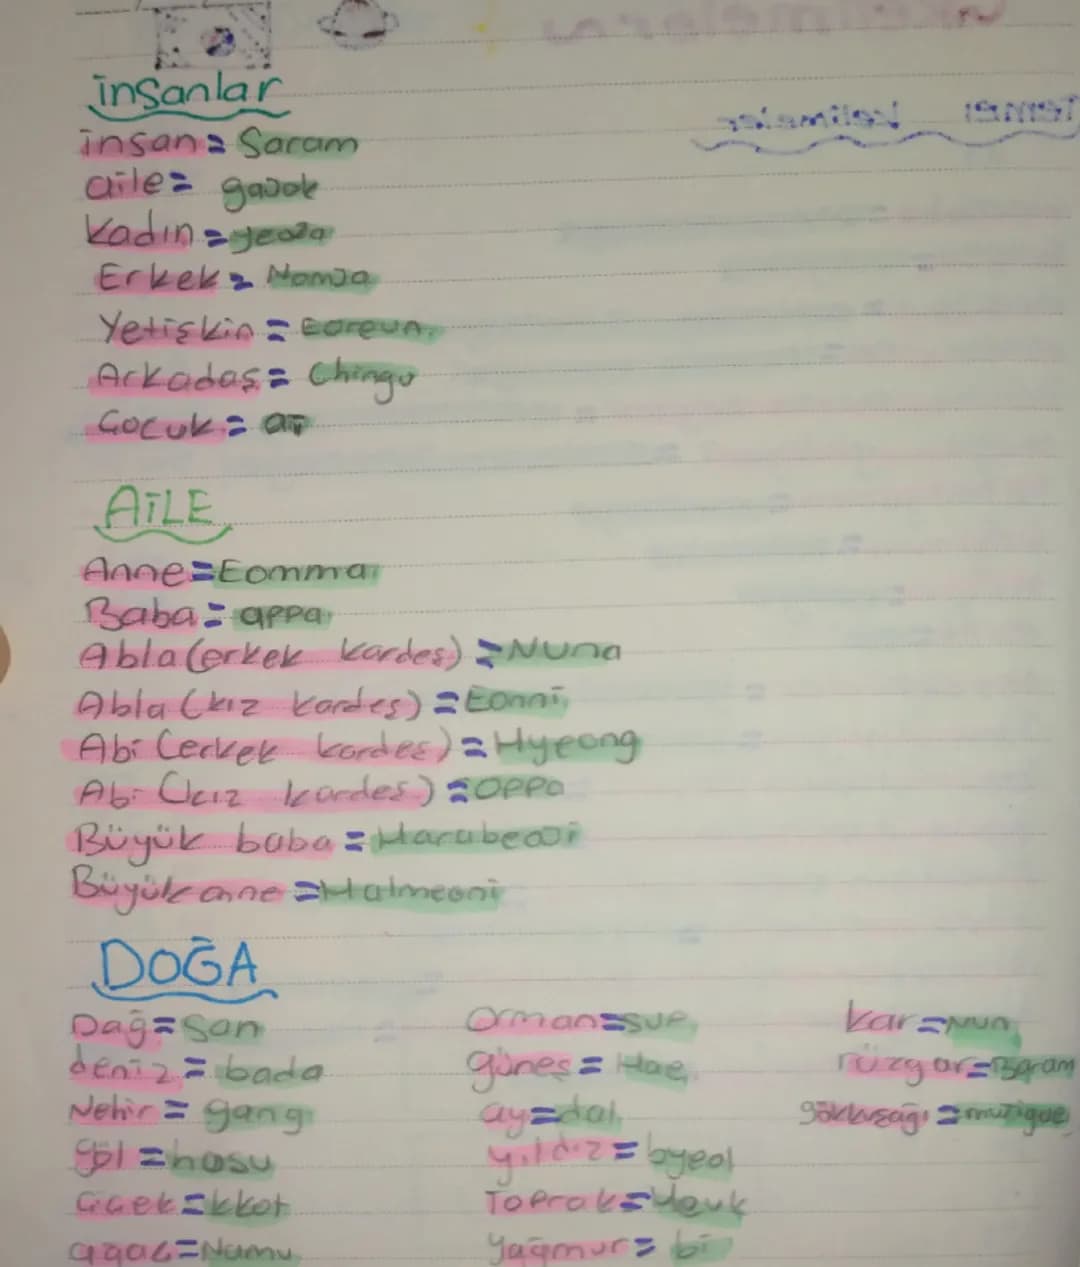 insanlar
insan = Saram
aile = gajok
Kadın = yeoza
Erkek = Namja
Yetişkin = Eoreun
Arkadaş = Chingu
Çocuk = ai
AİLE
Anne = Eomma
Baba = appa
Abla (erkek kardeş) = Nuna
Abla (kız kardeş) = Eonni
Abi (erkek kardeş) = Hyeong
Abi (kız kardeş) = OPPa
Büyük baba = Harabeoji
Büyük anne = Halmeoni
DOĞA
Dağ = San
deniz = bada
Nehir = gang
göl = hosu
Çiçek = kkot
ağaç = Namu
Orman = sup
güneş = Hae
ay = dal
yıldız = byeol
Toprak =
Yağmur = bi
kar = Nun
rüzgar = Baram
gökkuşağı =